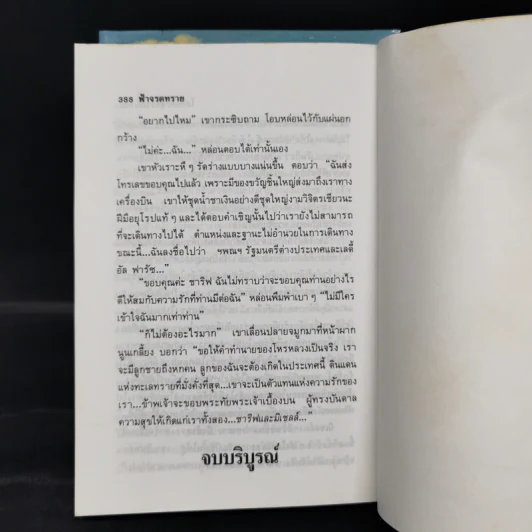 388 ฟ้าจรดทราย
“อยากไปไหม” เขากระซิบถาม โอบหล่อนไว้กับแผ่นอก
กว้าง
“ไม่ค่ะ...ฉัน...” หล่อนตอบได้เท่านั้นเอง
เขาหัวเราะหึ ๆ รัดร่างแบบบางแน่นขึ้น ตอบว่า “ฉันส่ง
โทรเลขขอบคุณไปแล้ว เพราะมีของขวัญชิ้นใหญ่ส่งมาถึงเราทาง
เครื่องบิน เขาให้ชุดน้ำชาเงินอย่างดีชุดใหญ่งามวิจิตรเชียวนะ
ฝีมือยุโรปแท้ ๆ และได้ตอบคำเชิญนั้นไปว่าเรายังไม่สามารถ
ที่จะเดินทางไปได้ ตำแหน่งและฐานะไม่อำนวยในการเดินทาง
ขณะนี้...ฉันลงชื่อไปว่า ฯพณฯ รัฐมนตรีต่างประเทศและเลดี้
อัล ฟารัซ...”
“ขอบคุณค่ะ ชารีฟ ฉันไม่ทราบว่าจะขอบคุณท่านอย่างไร
ดีให้สมกับความรักที่ท่านมีต่อฉัน” หล่อนพึมพำเบา ๆ “ไม่มีใคร
เข้าใจฉันมากเท่าท่าน”
“ก็ไม่ต้องอะไรมาก” เขาเลื่อนปลายจมูกมาที่หน้าผาก
นูนเกลี้ยง บอกว่า “ขอให้คำทำนายของโหรหลวงเป็นจริง เรา
จะมีลูกชายถึงหกคน ลูกของฉันจะต้องเกิดในประเทศนี้ ดินแดน
แห่งทะเลทรายที่มั่งคั่งที่สุด...เขาจะเป็นตัวแทนแห่งความรักของ
เรา...ข้าพเจ้าจะขอบพระทัยพระเจ้าเบื้องบน ผู้ทรงบันดาล
ความสุขให้เกิดแก่เราทั้งสอง...ชารีฟและมิเชลล์...”
จบบริบูรณ์